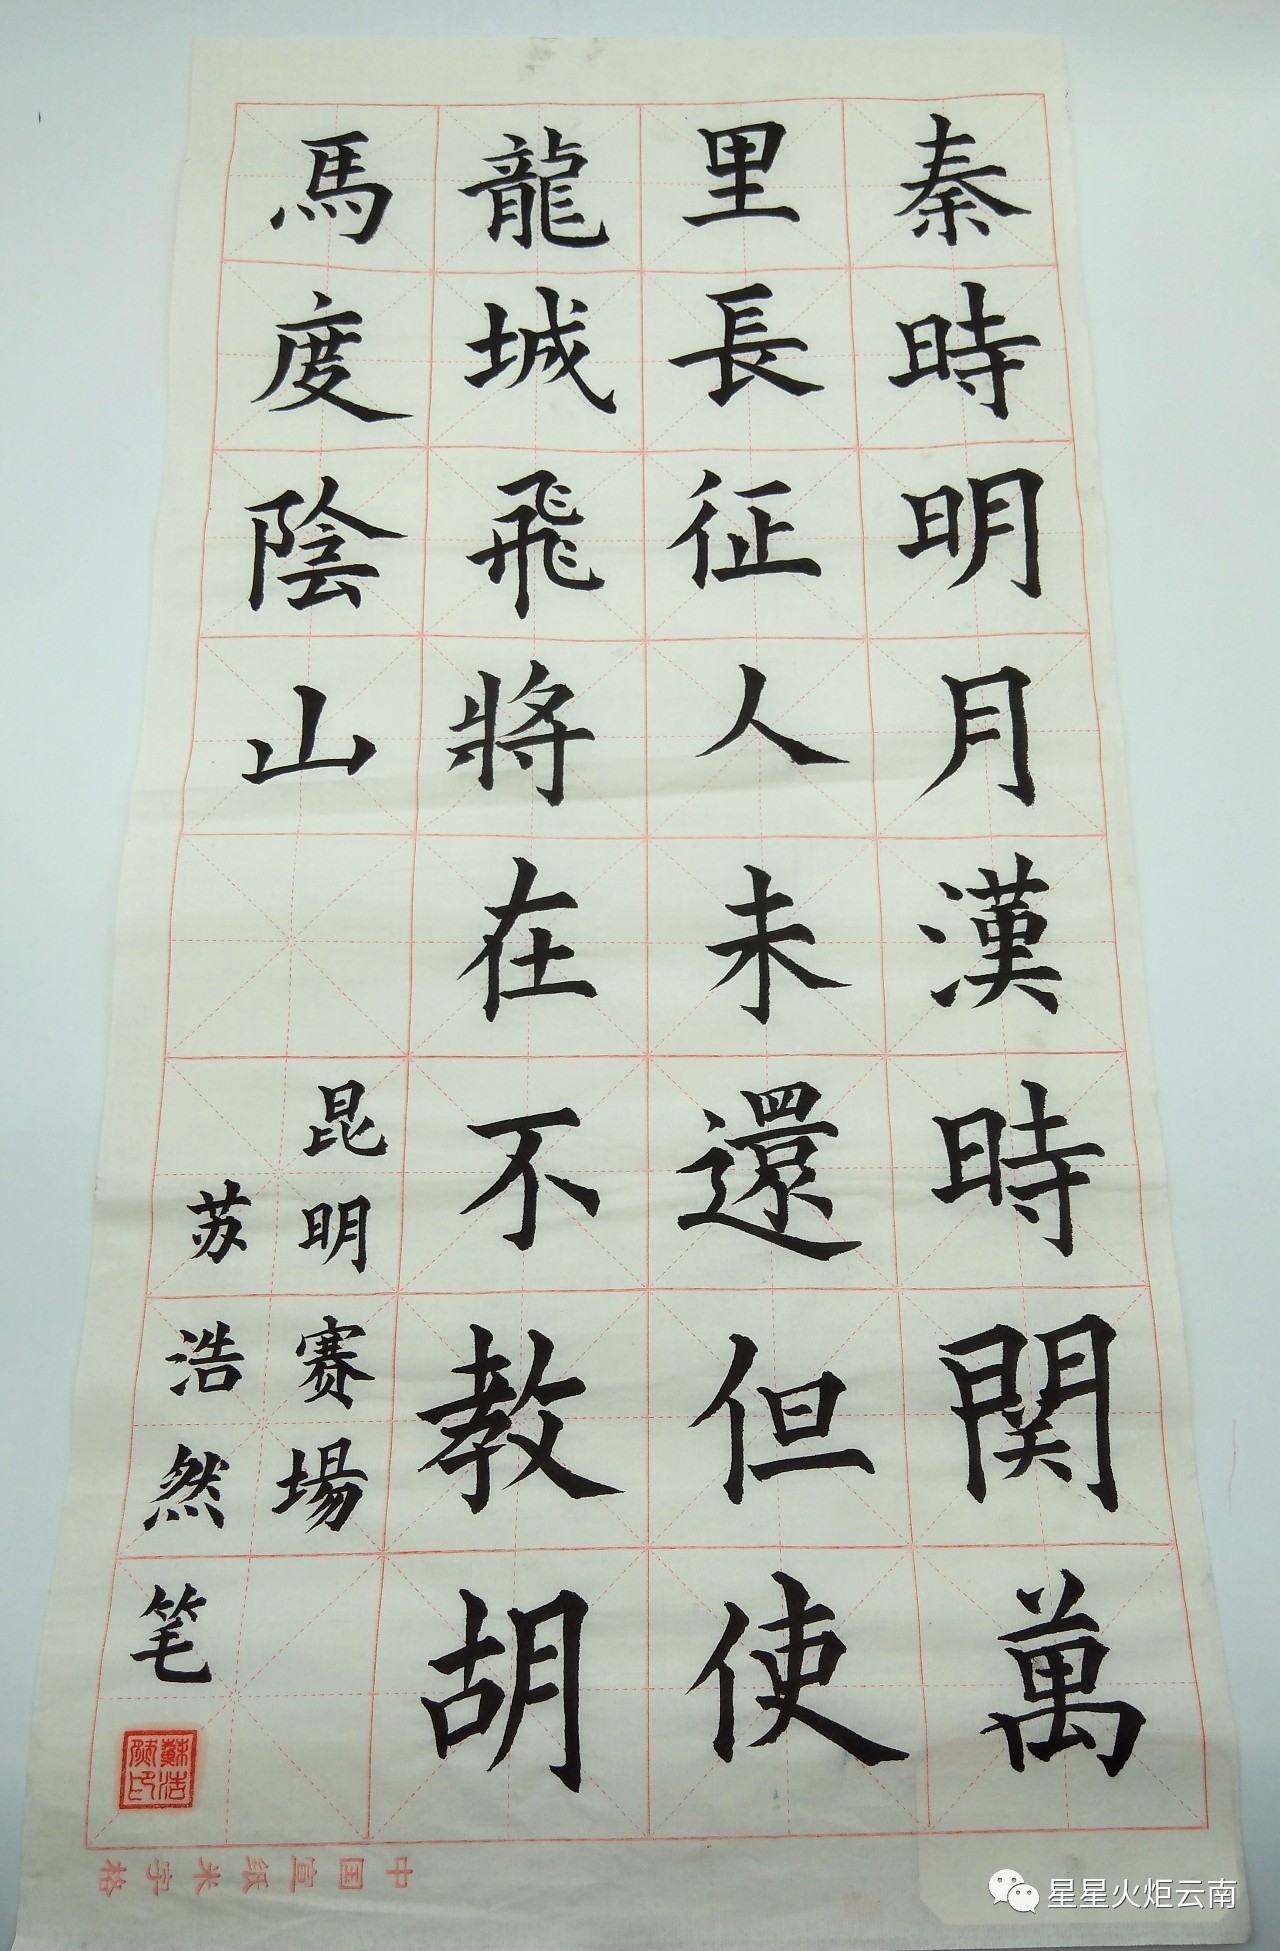 秦時明月漢時関萬
里長征人未還但使
龍城飛將在不教胡
馬度陰山
昆明赛場
苏浩然笔
蘇浩然印
中国宣纸米字格
星星火炬云南